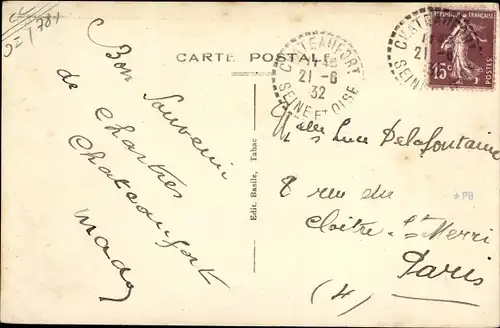 02/781
CARTE POSTALE
CHATEAUFORT
21-6
32
SEINE ET OISE
CHATEAUFORT
21-6
SEINE
REPUBLIQUE FRANÇAISE
15c
POSTES
Bon Souvenir
de Chartres
Chateaufort
Mado
Edit. Basile, Tabac
Melle Luce Delafontaine
8 rue du
Cloitre St Merri
Paris
(4)
★PB